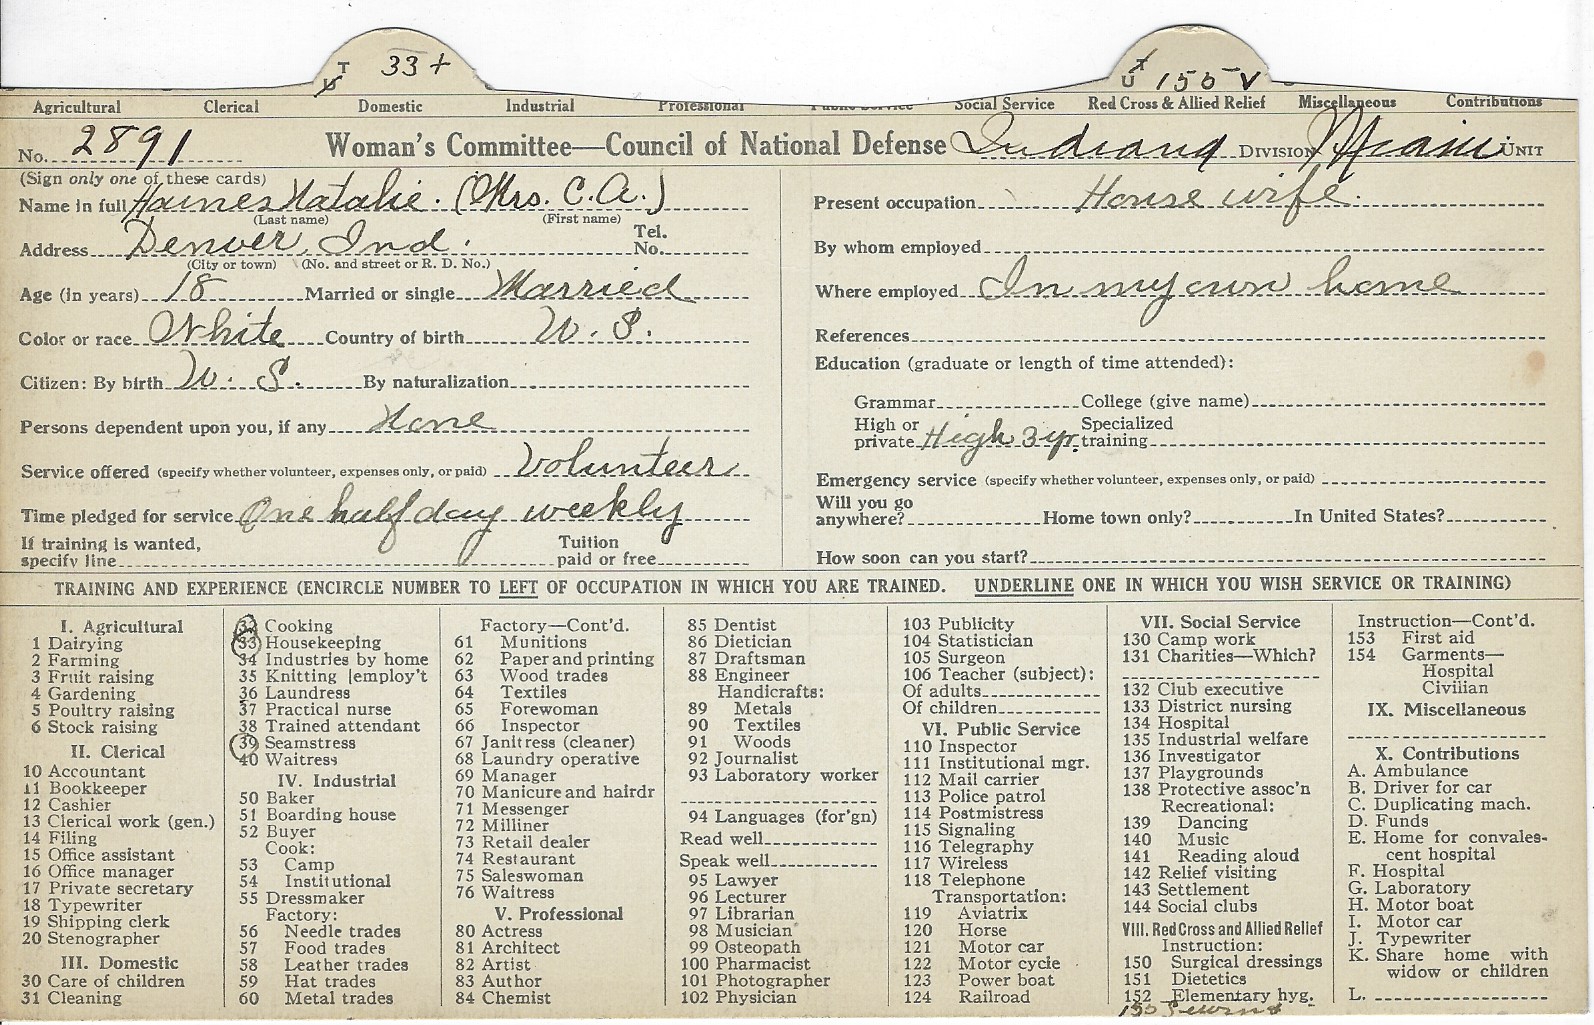 T
U 33 +
T
U 155 V
Agricultural Clerical Domestic Industrial Professional Public Service Social Service Red Cross & Allied Relief Miscellaneous Contributions
No. 2891 Woman's Committee—Council of National Defense Indiana DIVISION Miami UNIT
(Sign only one of these cards)
Name in full Haines Natalie. (Mrs. C.A.)
(Last name) (First name)
Address Denver, Ind. Tel. No.
(City or town) (No. and street or R. D. No.)
Age (in years) 18 Married or single Married
Color or race White Country of birth U. S.
Citizen: By birth U. S. By naturalization
Persons dependent upon you, if any None
Service offered (specify whether volunteer, expenses only, or paid) Volunteer
Time pledged for service One half day weekly
If training is wanted, specify line Tuition paid or free
Present occupation House wife
By whom employed
Where employed In my own home
References
Education (graduate or length of time attended):
Grammar College (give name)
High or private High 3 yr. Specialized training
Emergency service (specify whether volunteer, expenses only, or paid)
Will you go anywhere? Home town only? In United States?
How soon can you start?
TRAINING AND EXPERIENCE (ENCIRCLE NUMBER TO LEFT OF OCCUPATION IN WHICH YOU ARE TRAINED. UNDERLINE ONE IN WHICH YOU WISH SERVICE OR TRAINING)
I. Agricultural
1 Dairying
2 Farming
3 Fruit raising
4 Gardening
5 Poultry raising
6 Stock raising
II. Clerical
10 Accountant
11 Bookkeeper
12 Cashier
13 Clerical work (gen.)
14 Filing
15 Office assistant
16 Office manager
17 Private secretary
18 Typewriter
19 Shipping clerk
20 Stenographer
III. Domestic
30 Care of children
31 Cleaning
32 Cooking
33 Housekeeping
34 Industries by home
35 Knitting [employ't
36 Laundress
37 Practical nurse
38 Trained attendant
39 Seamstress
40 Waitress
IV. Industrial
50 Baker
51 Boarding house
52 Buyer
Cook:
53 Camp
54 Institutional
55 Dressmaker
Factory:
56 Needle trades
57 Food trades
58 Leather trades
59 Hat trades
60 Metal trades
Factory—Cont'd.
61 Munitions
62 Paper and printing
63 Wood trades
64 Textiles
65 Forewoman
66 Inspector
67 Janitress (cleaner)
68 Laundry operative
69 Manager
70 Manicure and hairdr
71 Messenger
72 Milliner
73 Retail dealer
74 Restaurant
75 Saleswoman
76 Waitress
V. Professional
80 Actress
81 Architect
82 Artist
83 Author
84 Chemist
85 Dentist
86 Dietician
87 Draftsman
88 Engineer
Handicrafts:
89 Metals
90 Textiles
91 Woods
92 Journalist
93 Laboratory worker
94 Languages (for'gn)
Read well
Speak well
95 Lawyer
96 Lecturer
97 Librarian
98 Musician
99 Osteopath
100 Pharmacist
101 Photographer
102 Physician
103 Publicity
104 Statistician
105 Surgeon
106 Teacher (subject):
Of adults
Of children
VI. Public Service
110 Inspector
111 Institutional mgr.
112 Mail carrier
113 Police patrol
114 Postmistress
115 Signaling
116 Telegraphy
117 Wireless
118 Telephone
Transportation:
119 Aviatrix
120 Horse
121 Motor car
122 Motor cycle
123 Power boat
124 Railroad
VII. Social Service
130 Camp work
131 Charities—Which?
132 Club executive
133 District nursing
134 Hospital
135 Industrial welfare
136 Investigator
137 Playgrounds
138 Protective assoc'n
Recreational:
139 Dancing
140 Music
141 Reading aloud
142 Relief visiting
143 Settlement
144 Social clubs
VIII. Red Cross and Allied Relief
Instruction:
150 Surgical dressings
151 Dietetics
152 Elementary hyg.
155 Sewing
Instruction—Cont'd.
153 First aid
154 Garments—
Hospital
Civilian
IX. Miscellaneous
X. Contributions
A. Ambulance
B. Driver for car
C. Duplicating mach.
D. Funds
E. Home for convales-
cent hospital
F. Hospital
G. Laboratory
H. Motor boat
I. Motor car
J. Typewriter
K. Share home with
widow or children
L.